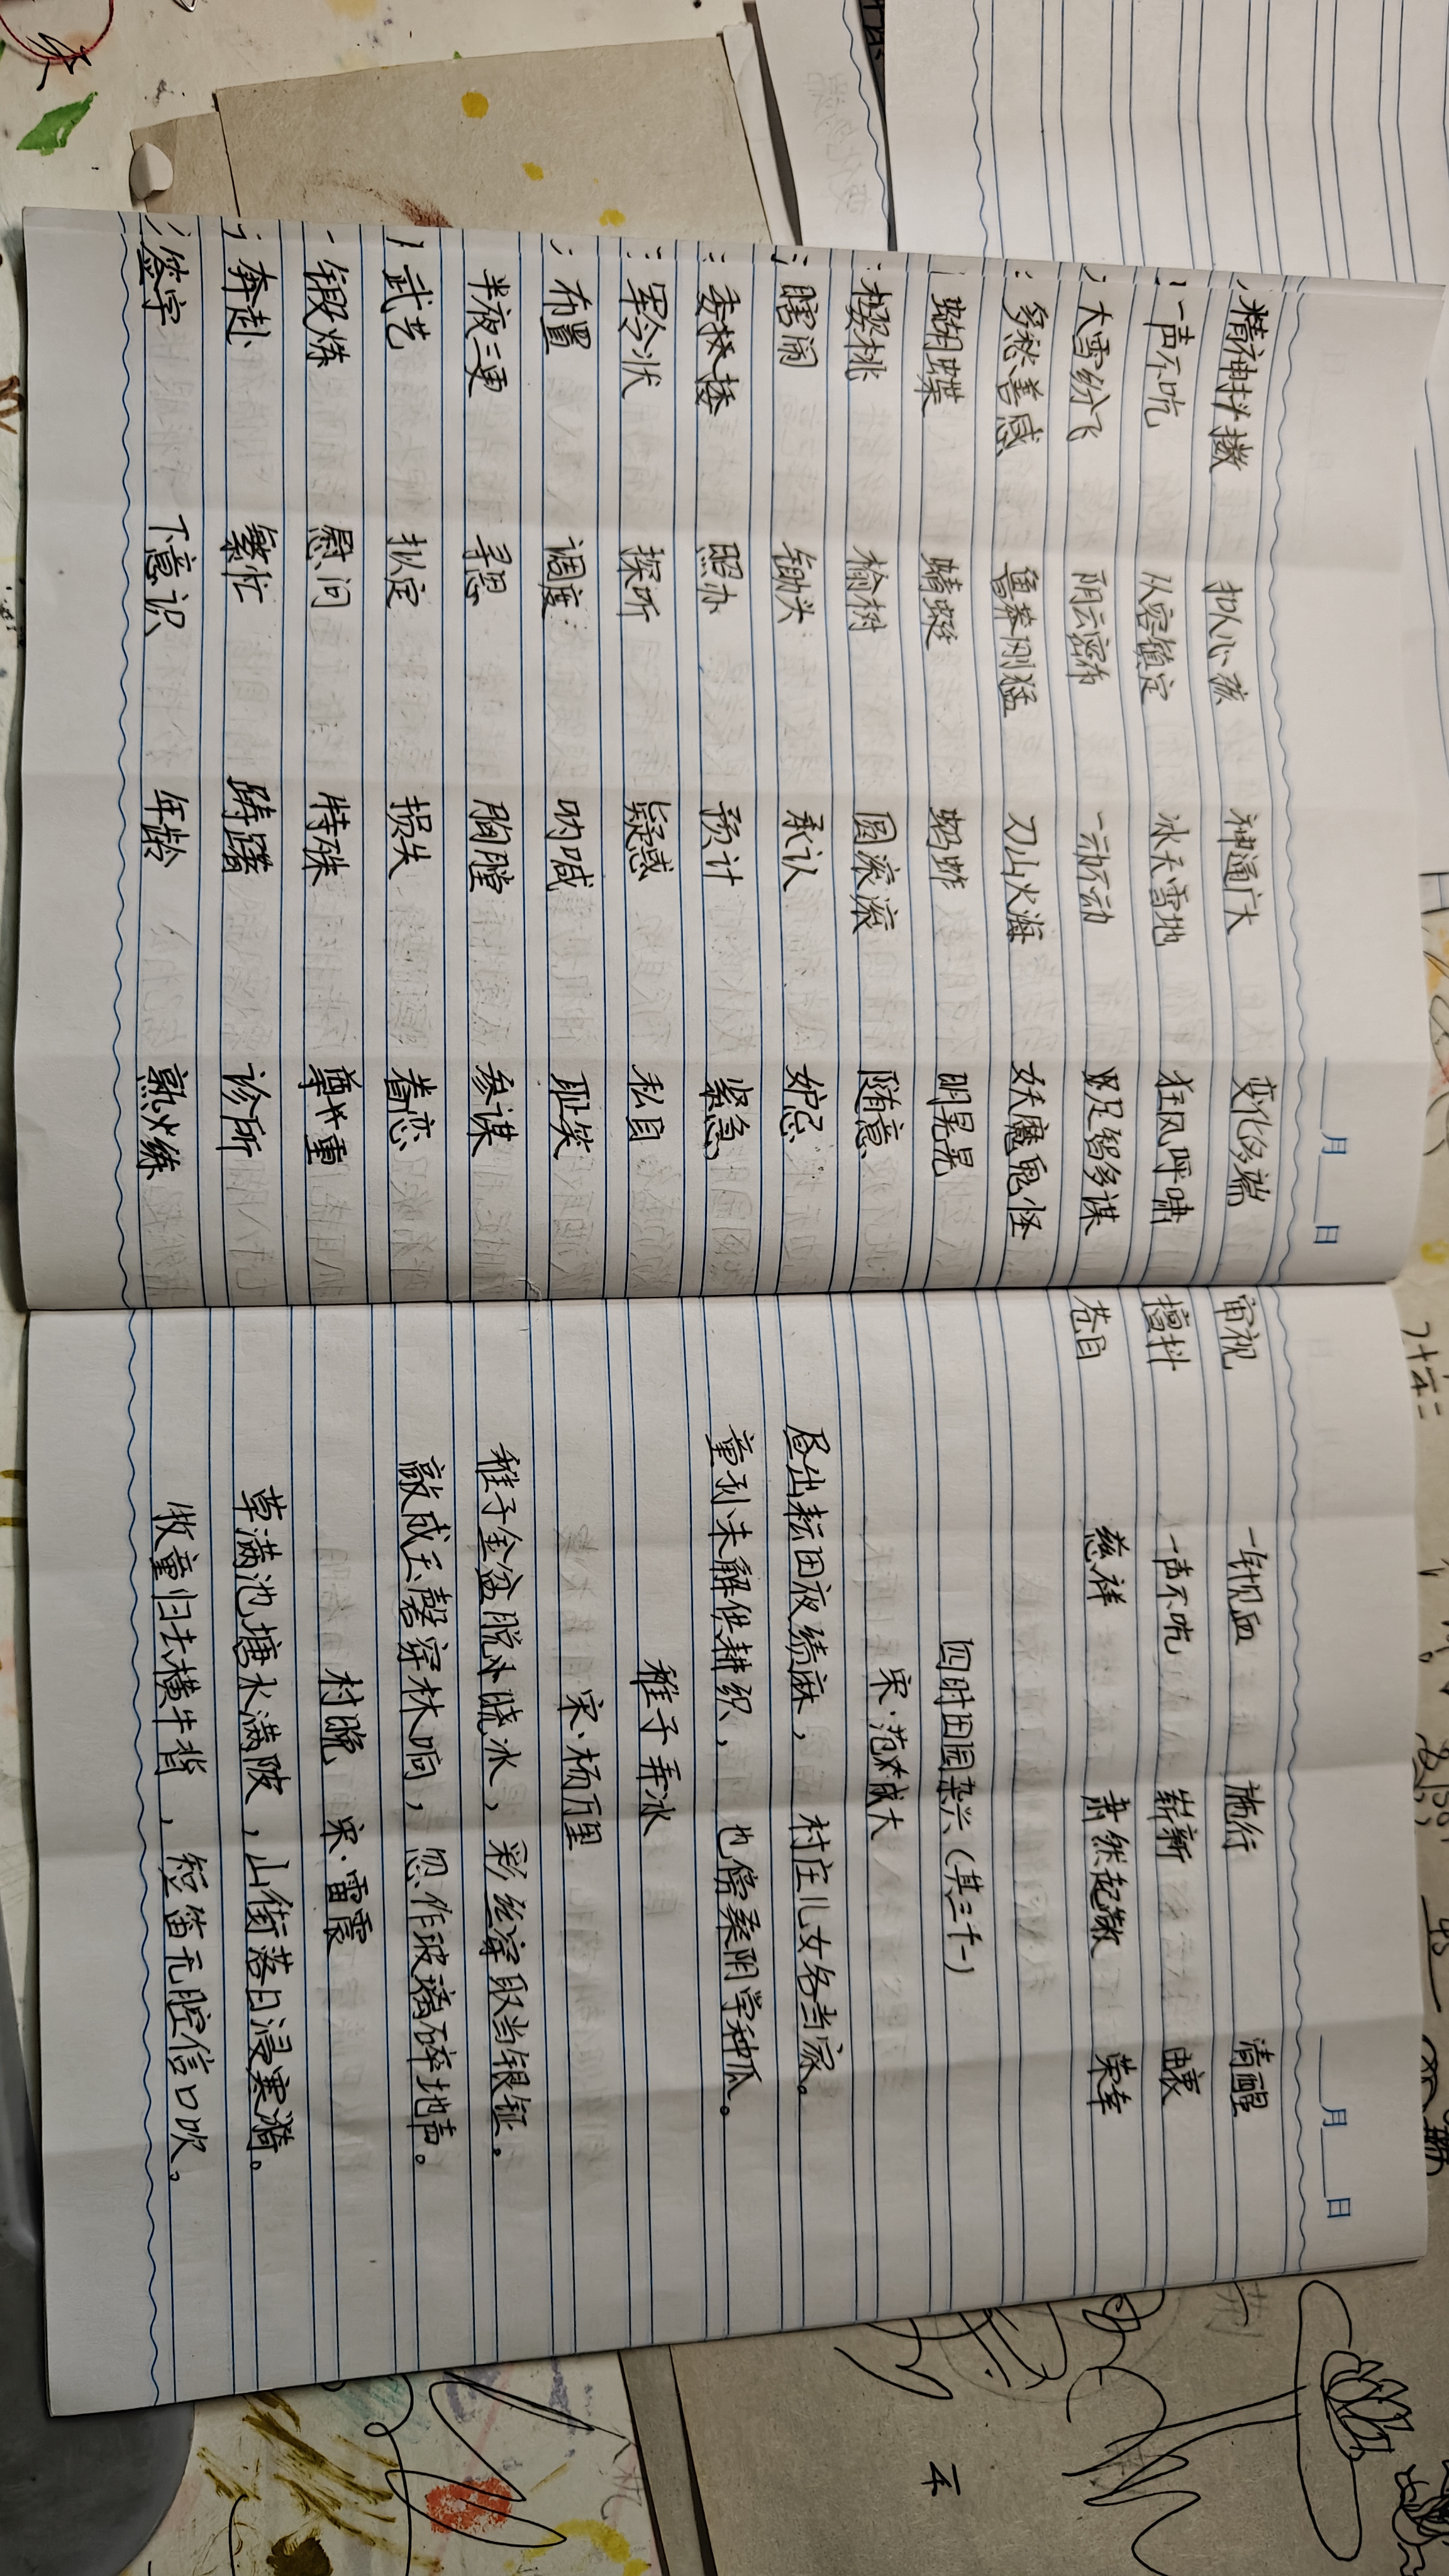 月 日
精神抖擞 扣人心弦 神通广大 变化多端
一声不吭 从容镇定 冰天雪地 狂风呼啸
大雪纷飞 阴云密布 一动不动 足智多谋
多愁善感 鲁莽刚猛 刀山火海 妖魔鬼怪
蝴蝶 蜻蜓 蚂蚱 明晃晃
樱桃 榆树 圆滚滚 随意
瞎闹 锄头 承认 妒忌
委 照办 预计 紧急
军令状 探听 疑惑 私自
布置 调度 呐喊 耻笑
半夜三更 寻思 胸膛 参谋
武艺 拟定 损失 眷恋
锻炼 慰问 特殊 尊 重
奔赴 繁忙 踌躇 诊所
签字 下意识 年龄 熟 练
月 日
审视 一针见血 施行 清醒
擅抖 一声不吭 崭新 由衷
慈祥 肃然起敬 荣幸
四时田园杂兴(其三十一)
宋·范 成大
昼出耘田夜绩麻, 村庄儿女各当家。
童孙未解供耕织, 也傍桑阴学种瓜。
稚子弄冰
宋·杨万里
稚子金盆脱 晓冰, 彩丝穿取当银钲。
敲成玉磬穿林响, 忽作玻璃碎地声。
村晚 宋·雷震
草满池塘水满陂, 山衔落日浸寒漪。
牧童归去横牛背, 短笛无腔信口吹。